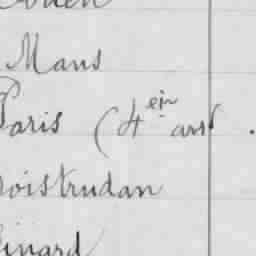 Rouen
Mans
Paris (4ein arrt.
oistrudan
inard